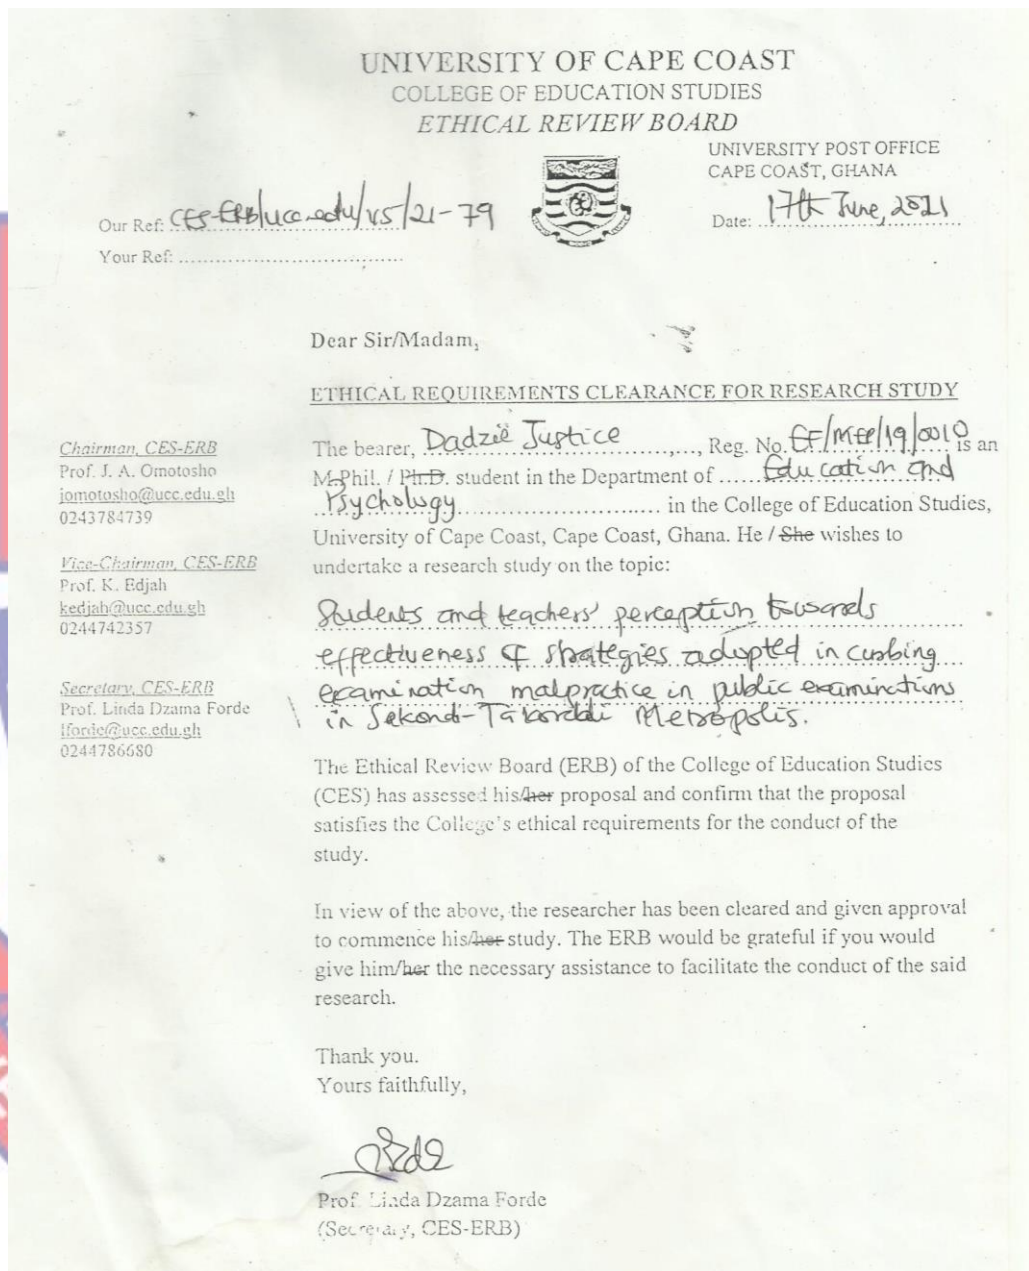 UNIVERSITY OF CAPE COAST
COLLEGE OF EDUCATION STUDIES
ETHICAL REVIEW BOARD
UNIVERSITY POST OFFICE
CAPE COAST, GHANA
Our Ref: CES-ERB/ucc.edu/V5/21-79
Date: 17th June, 2021
Your Ref: ........................................
Dear Sir/Madam,
ETHICAL REQUIREMENTS CLEARANCE FOR RESEARCH STUDY
Chairman, CES-ERB
Prof. J. A. Omotosho
jomotosho@ucc.edu.gh
0243784739
Vice-Chairman, CES-ERB
Prof. K. Edjah
kedjah@ucc.edu.gh
0244742357
Secretary, CES-ERB
Prof. Linda Dzama Forde
lforde@ucc.edu.gh
0244786680
The bearer, Dadzie Justice ......,..., Reg. No. EF/MEP/19/0010 is an
M.Phil. / Ph.D. student in the Department of ...... Education and
Psychology .............................. in the College of Education Studies,
University of Cape Coast, Cape Coast, Ghana. He / She wishes to
undertake a research study on the topic:
Students and teachers' perception towards
effectiveness of strategies adopted in curbing
examination malpractice in public examinations
in Sekondi-Takoradi Metropolis.
The Ethical Review Board (ERB) of the College of Education Studies
(CES) has assessed his/her proposal and confirm that the proposal
satisfies the College's ethical requirements for the conduct of the
study.
In view of the above, the researcher has been cleared and given approval
to commence his/her study. The ERB would be grateful if you would
give him/her the necessary assistance to facilitate the conduct of the said
research.
Thank you.
Yours faithfully,
Prof. Linda Dzama Forde
(Secretary, CES-ERB)